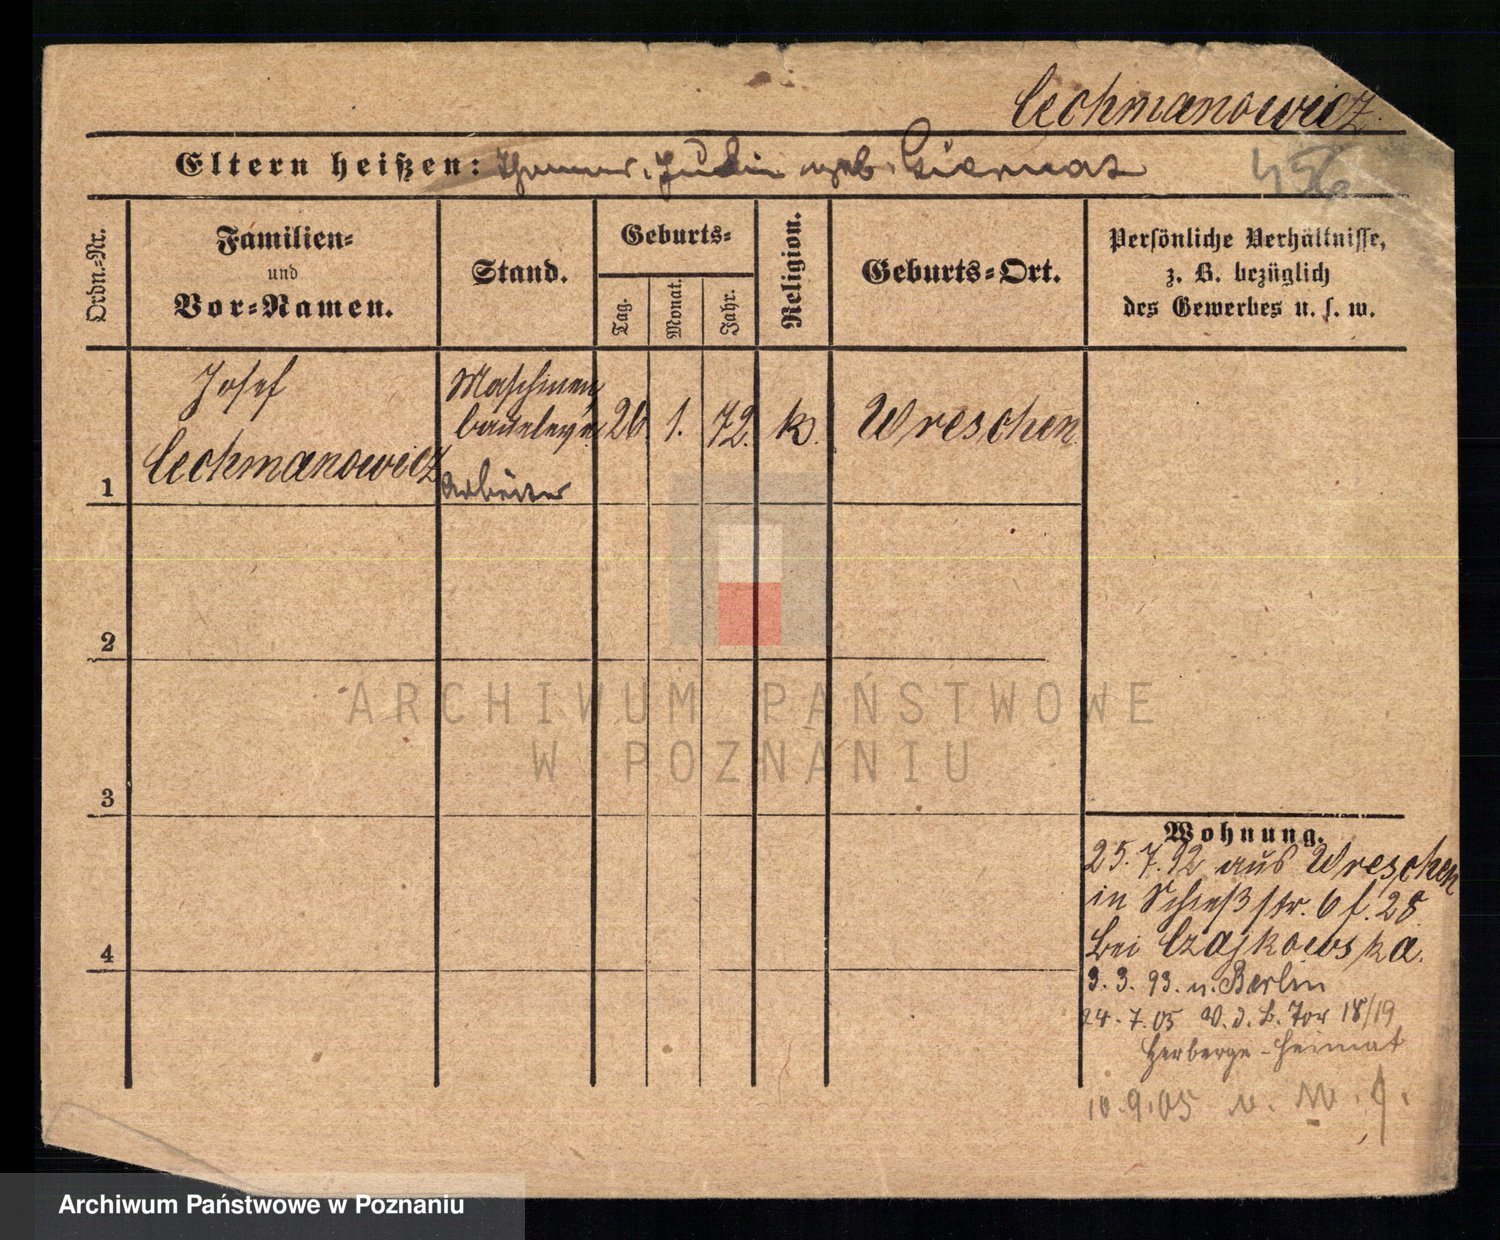 Cechmanowicz.
Eltern heißen:
geb.
Ordn.-Nr.
Familien-
und
Vor-Namen.
Stand.
Geburts-
Tag.
Monat.
Jahr.
Religion.
Geburts-Ort.
Persönliche Verhältnisse,
z. B. bezüglich
des Gewerbes u. s. w.
1
Josef
Cechmanowicz
Maschinen
baueleve
Arbeiter
26.
1.
72.
k.
Wreschen
2
3
4
Wohnung.
25.7.92 aus Wreschen
in Schießstr. 6 f. 28
bei Czajkowska.
3. 3. 93. n. Berlin
24. 7. 05 V. d. B. Tor 18/19
Herberge - Heimat
10.9.05 n.
ARCHIWUM PAŃSTWOWE
W POZNANIU
Archiwum Państwowe w Poznaniu